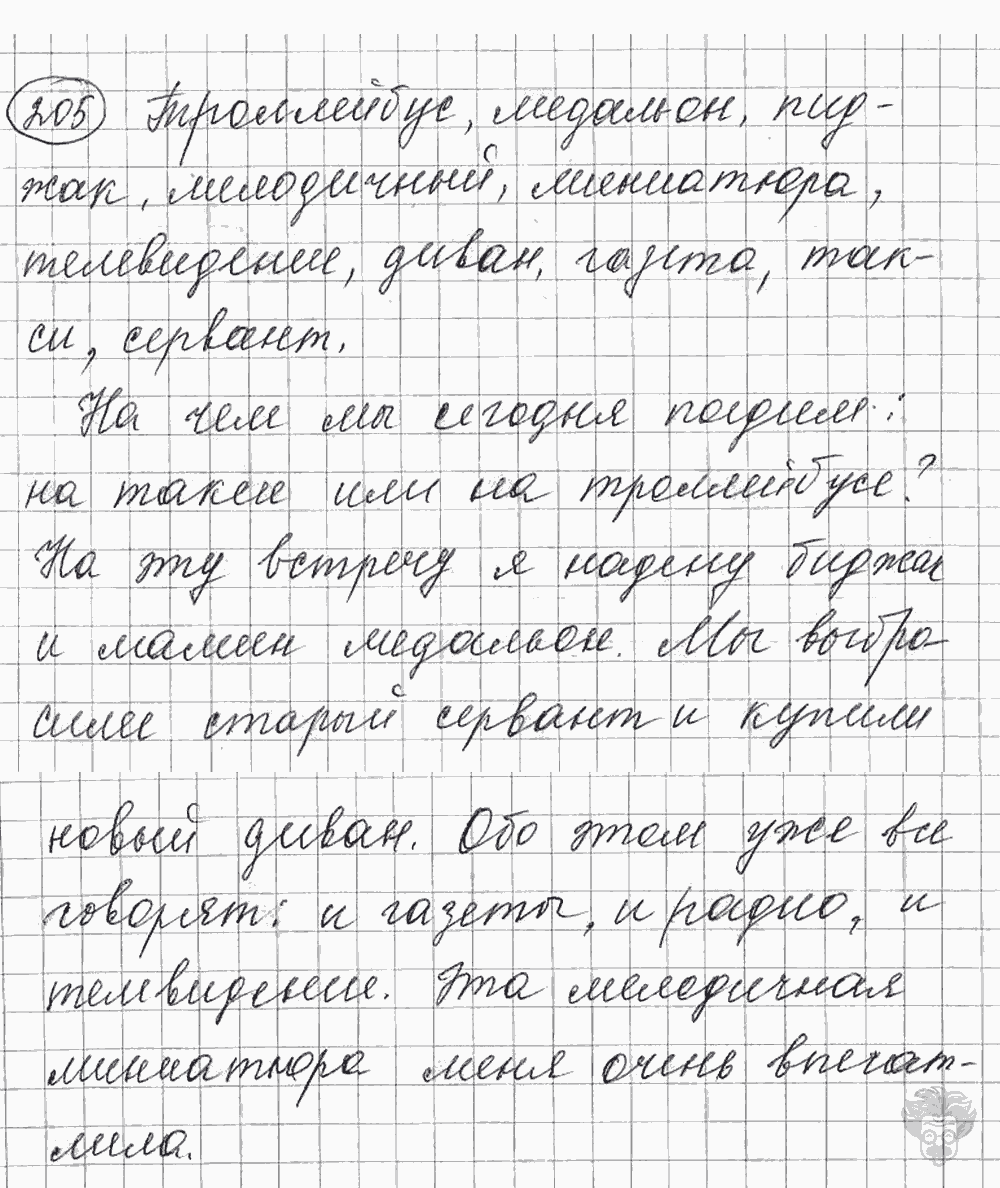 205 Троллейбус, медальон, пид-
жак, мелодичный, миниатюра,
телевидение, диван, газета, так-
си, сервант.
На чем мы сегодня поедим:
на такси или на троллейбусе?
На эту встречу я надену биджак
и мамин медальон. Мы выбро-
сили старый сервант и купили
новый диван. Обо этом уже все
говорят: и газеты, и радио, и
телевидение. Эта мелодичная
миниатюра меня очень впечат-
лила.